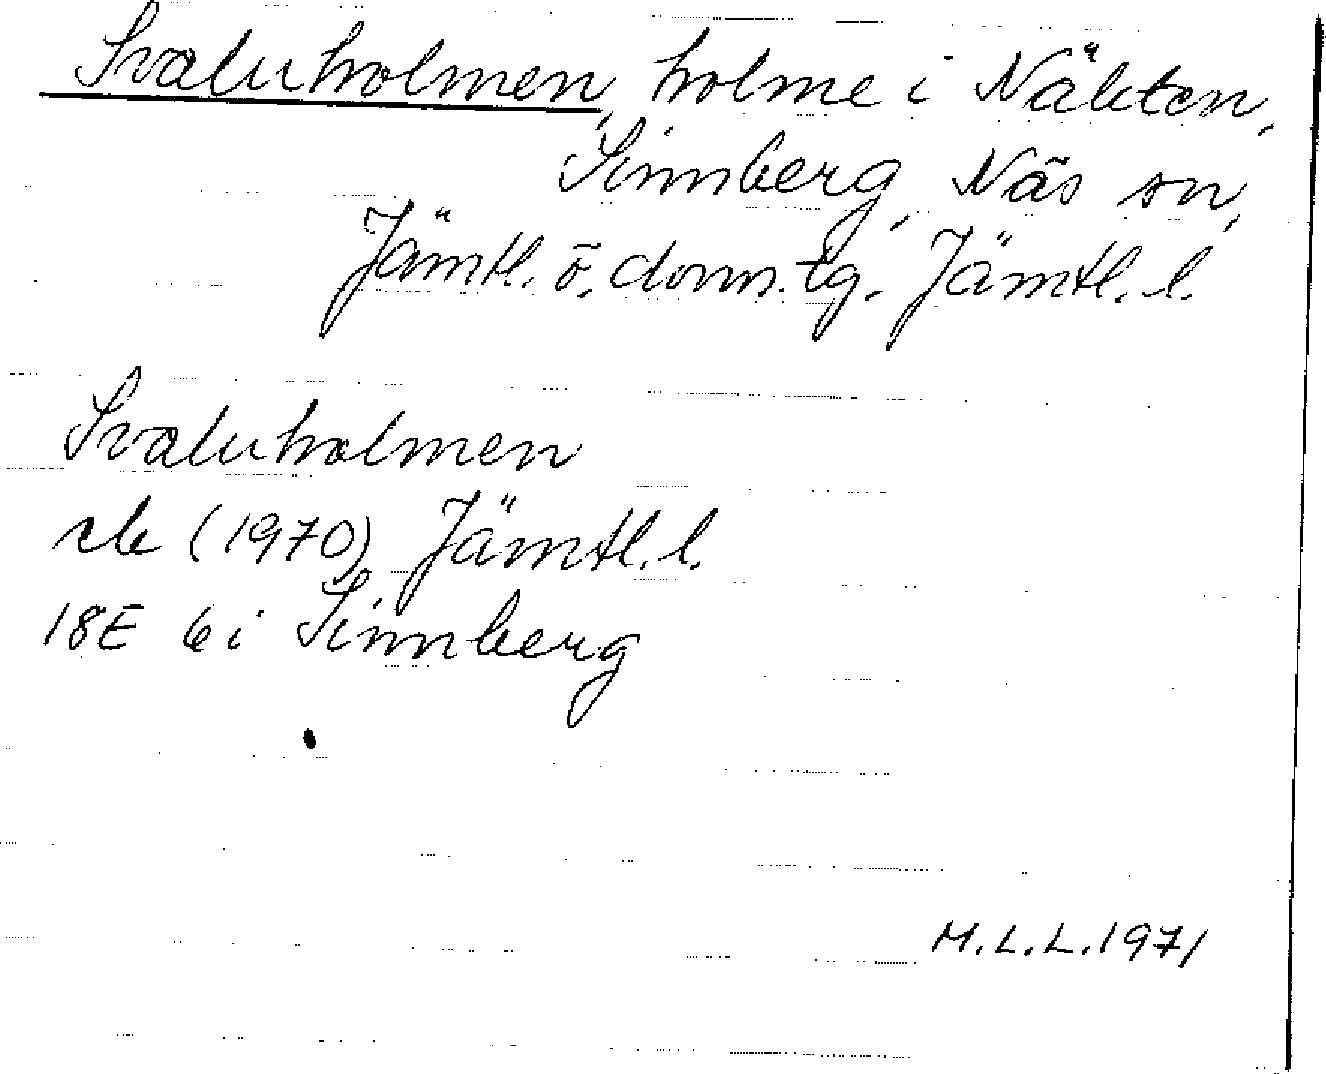 Svaluholmen, holme i Näkten,
Sinnberg, Näs sn,
Jämtl. ö. doms. tg. Jämtl. l.
Svaluholmen
rb (1970) Jämtl. l.
18E 6i Sinnberg
M.L.L. 1971